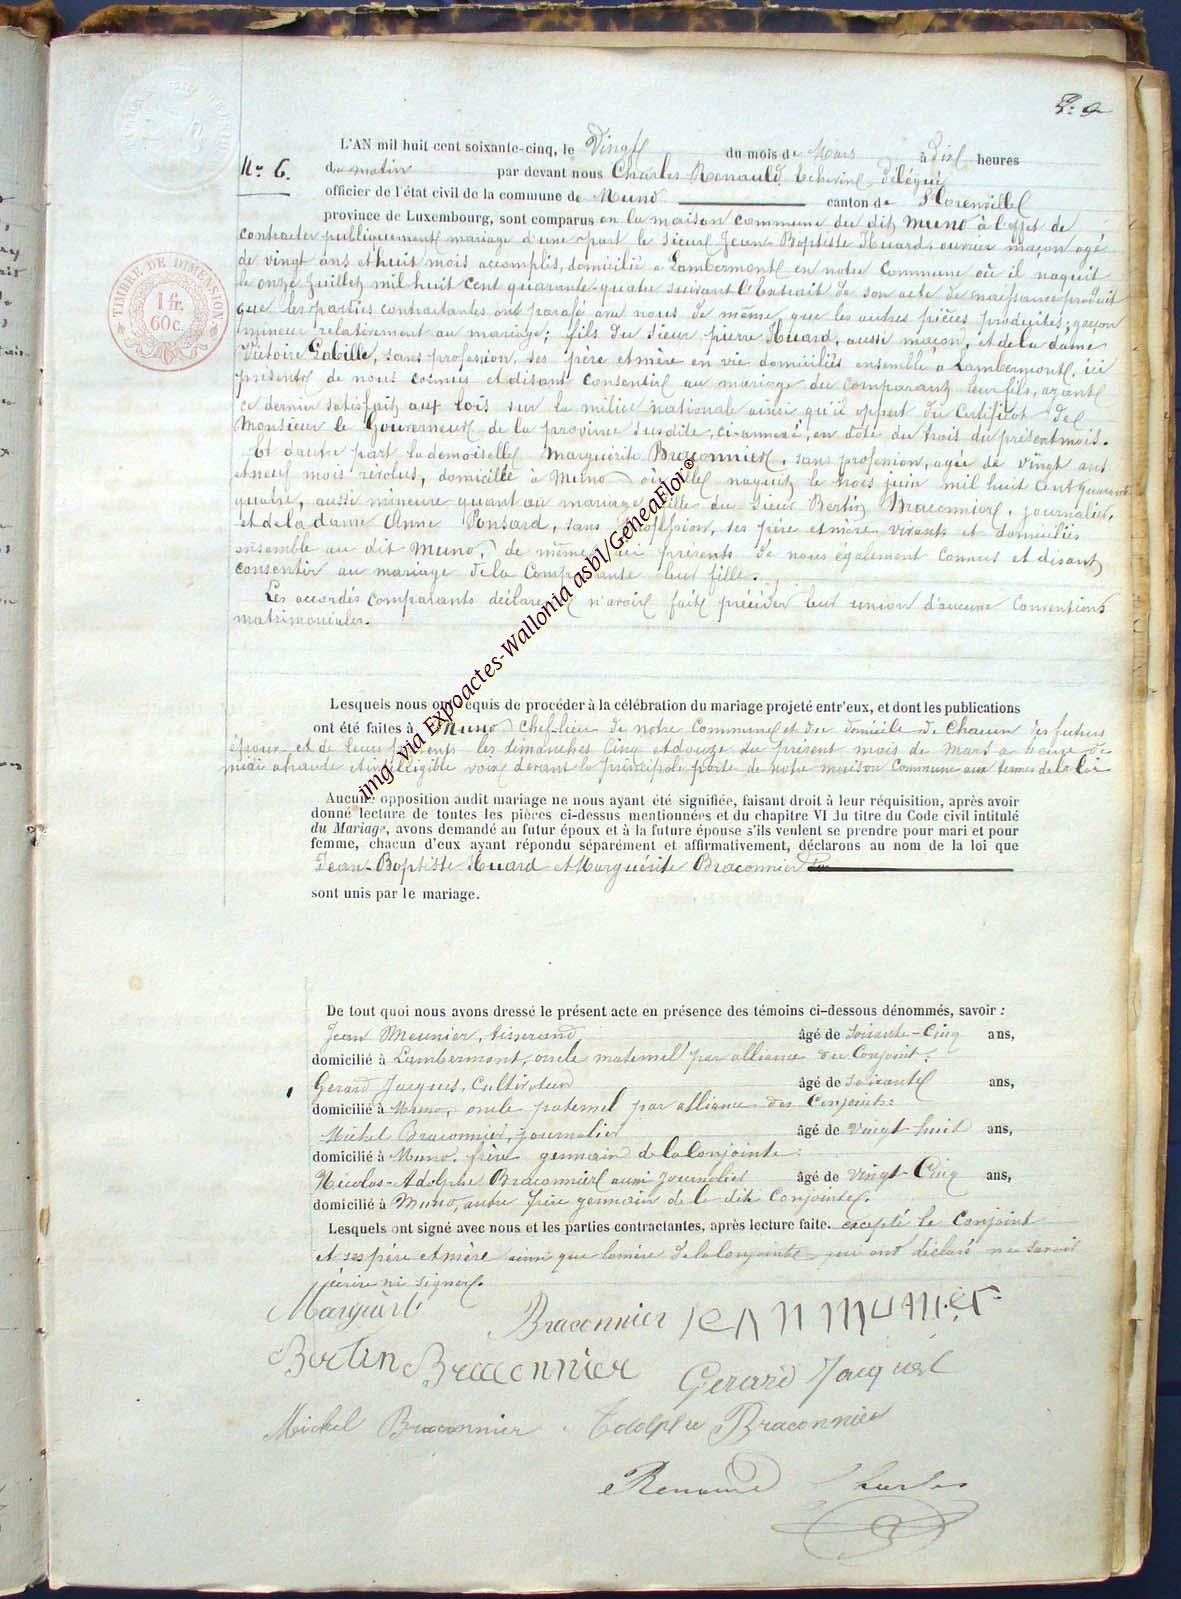 F: 9
L'AN mil huit cent soixante-cinq, le Vingt du mois de Mars à dix heures
Nº 6. du matin par devant nous Charles Renauld, Echevin délégué
officier de l'état civil de la commune de Muno canton de Florenville
province de Luxembourg, sont comparus en la maison commune du dit Muno à l'effet de
contracter publiquement mariage d'une part le sieur Jean-Baptiste Huard, ouvrier maçon agé
de vingt ans et huit mois accomplis, domicilié à Lambermont en notre Commune où il naquit
le onze Juillet mil huit cent quarante-quatre suivant l'Extrait de son acte de naissance produit
que les parties contractantes ont parafé avec nous de même que les autres pièces produites; garçon
mineur relativement au mariage; fils du Sieur pierre Huard, aussi maçon, et de la dame
Victoire Labille, sans profession, ses père et mère en vie domiciliés ensemble à Lambermont, ici
présents de nous connus et disant consentir au mariage du Comparant leur fils, ayant
ce dernier satisfait aux lois sur la milice nationale ainsi qu'il appert du Certificat de
Monsieur le Gouverneur de la province susdite, ci-annexé, en date du trois du présent mois.
Et d'autre part la demoiselle Marguérite Braconnier, sans profession, agée de vingt ans
et neuf mois révolus, domiciliée à Muno où elle naquit le trois juin mil huit cent quarante
quatre, aussi mineure quant au mariage, fille du Sieur Bertin Braconnier, journalier,
et de la dame Anne Ponsard, sans profession, ses père et mère vivants et domiciliés
ensemble au dit Muno, de même ici présents de nous également connus et disant
consentir au mariage de la Comparante leur fille.
Les accordés Comparants déclarent n'avoir fait précéder leur union d'aucune Conventions
matrimoniales.
TIMBRE DE DIMENSION
1 fr.
60 c.
Lesquels nous ont requis de procéder à la célébration du mariage projeté entr'eux, et dont les publications
ont été faites à Muno Chef-lieu de notre Commune et du domicile de Chacun des futurs
époux et de leurs parents les dimanches Cinq et douze du présent mois de mars à heure de
midi à haute et intelligible voix devant la principale porte de notre maison Commune aux termes de la loi
Aucune opposition audit mariage ne nous ayant été signifiée, faisant droit à leur réquisition, après avoir
donné lecture de toutes les pièces ci-dessus mentionnées et du chapitre VI du titre du Code civil intitulé
du Mariage, avons demandé au futur époux et à la future épouse s'ils veulent se prendre pour mari et pour
femme, chacun d'eux ayant répondu séparément et affirmativement, déclarons au nom de la loi que
Jean-Baptiste Huard et Marguérite Braconnier
sont unis par le mariage.
De tout quoi nous avons dressé le présent acte en présence des témoins ci-dessous dénommés, savoir :
Jean Meunier, tisserand âgé de soixante-Cinq ans,
domicilié à Lambermont, oncle maternel par alliance du Conjoint.
Gerard Jacques, Cultivateur âgé de soixante ans,
domicilié à Muno, oncle paternel par alliance des Conjoints:
Michel Braconnier, journalier âgé de vingt-huit ans,
domicilié à Muno, frère germain de la Conjointe:
Nicolas-Adolphe Braconnier aussi journalier âgé de vingt-Cinq ans,
domicilié à Muno, autre frère germain de la dite Conjointe.
Lesquels ont signé avec nous et les parties contractantes, après lecture faite. excepté le Conjoint
et ses père et mère ainsi que la mère de la Conjointe qui ont déclaré ne savoir
écrire ni signer.
Marguerite Braconnier Jean Munier
Bertin Braconnier Gerard Jacques
Michel Braconnier Adolphe Braconnier
Renauld Charles
img via Expoactes-Wallonia asbl/GeneaFlor©